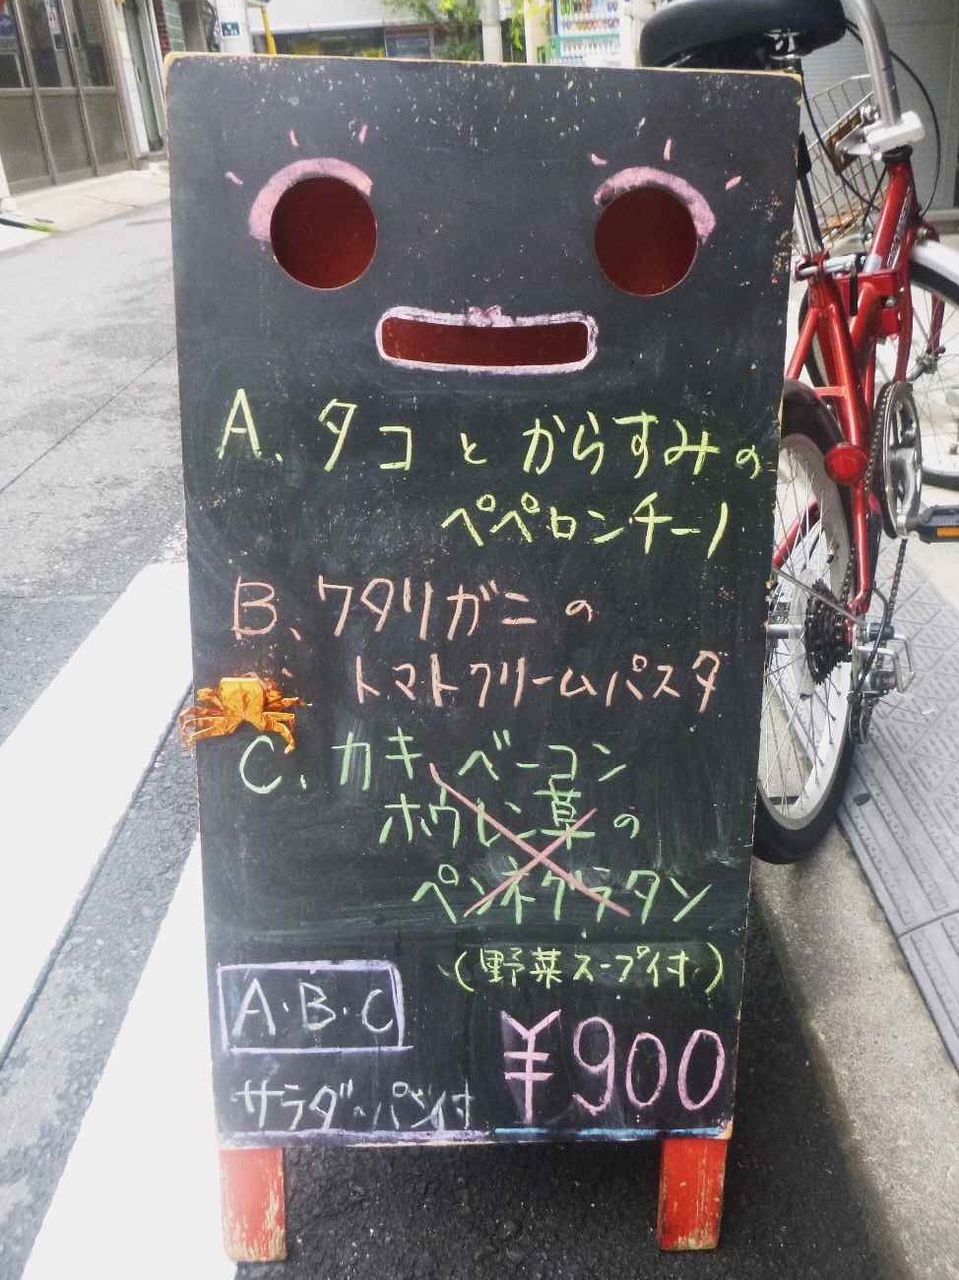 A. タコとからすみの
ペペロンチーノ
B、ワタリガニの
トマトクリームパスタ
C. カキ、ベーコン
ホウレン草の
ペンネグラタン
(野菜スープ付)
A・B・C
¥900
サラダ・パン付